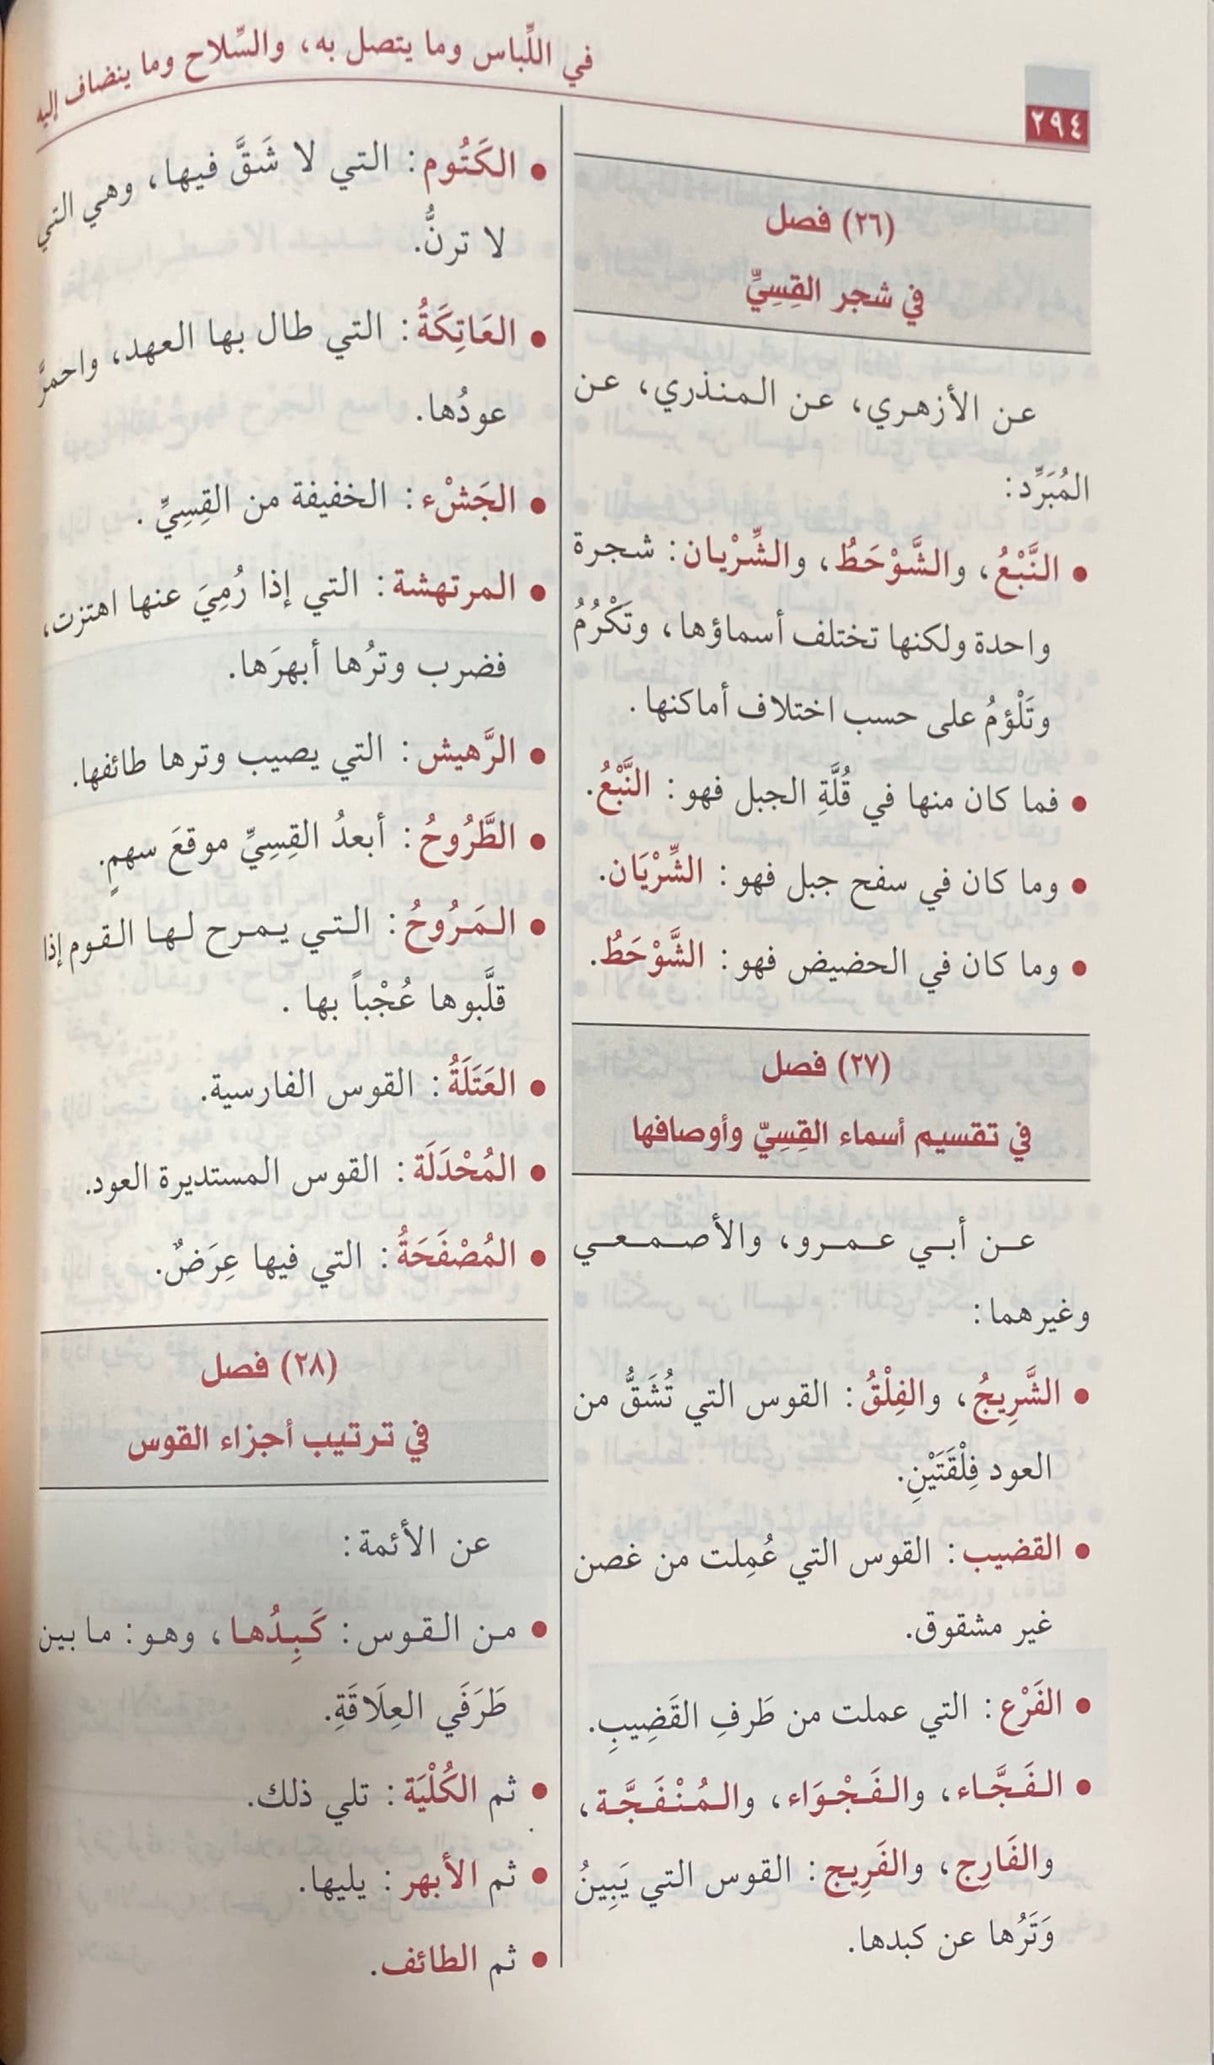 في اللِّباس وما يتصل به، والسِّلاح وما ينضاف إليه
٢٩٤
(٢٦) فصل
في شجر القِسِيِّ
عن الأزهري، عن المنذري، عن
المُبَرِّد:
• النَّبْعُ، والشَّوْحَطُ، والشِّرْيان: شجرة
واحدة ولكنها تختلف أسماؤها، وتَكْرُمُ
وتَلْؤمُ على حسب اختلاف أماكنها.
• فما كان منها في قُلَّةِ الجبل فهو: النَّبْعُ.
• وما كان في سفح جبل فهو: الشِّرْيَان.
• وما كان في الحضيض فهو: الشَّوْحَطُ.
(٢٧) فصل
في تقسيم أسماء القِسِيّ وأوصافها
عن أبي عمرو، والأصمعي
وغيرهما:
• الشَّرِيجُ، والفِلْقُ: القوس التي تُشَقُّ من
العود فِلْقَتَيْنِ.
• القضيب: القوس التي عُمِلت من غصن
غير مشقوق.
• الفَرْع: التي عملت من طَرفِ القَضِيبِ.
• الفَجَّاء، والفَجْوَاء، والمُنْفَجَّة،
والفَارِج، والفَرِيج: القوس التي يَبِينُ
وَتَرُها عن كبدها.
• الكَتُوم: التي لا شَقَّ فيها، وهي التي
لا ترنُّ.
• العَاتِكَةُ: التي طال بها العهد، واحمرَّ
عودُها.
• الجَشْء: الخفيفة من القِسِيِّ.
• المرتهشة: التي إذا رُمِيَ عنها اهتزت،
فضرب وترُها أبهرَها.
• الرَّهيش: التي يصيب وترها طائفها.
• الطَّرُوحُ: أبعدُ القِسِيِّ موقعَ سهمٍ.
• المَرُوحُ: التي يمرح لها القوم إذا
قلَّبوها عُجْباً بها.
• العَتَلَةُ: القوس الفارسية.
• المُحْدَلَة: القوس المستديرة العود.
• المُصْفَحَةُ: التي فيها عِرَضٌ.
(٢٨) فصل
في ترتيب أجزاء القوس
عن الأئمة:
• من القوس: كَبِدُها، وهو: ما بين
طَرَفَي العِلَاقَةِ.
• ثم الكُلْيَة: تلي ذلك.
• ثم الأبهر: يليها.
• ثم الطائف.